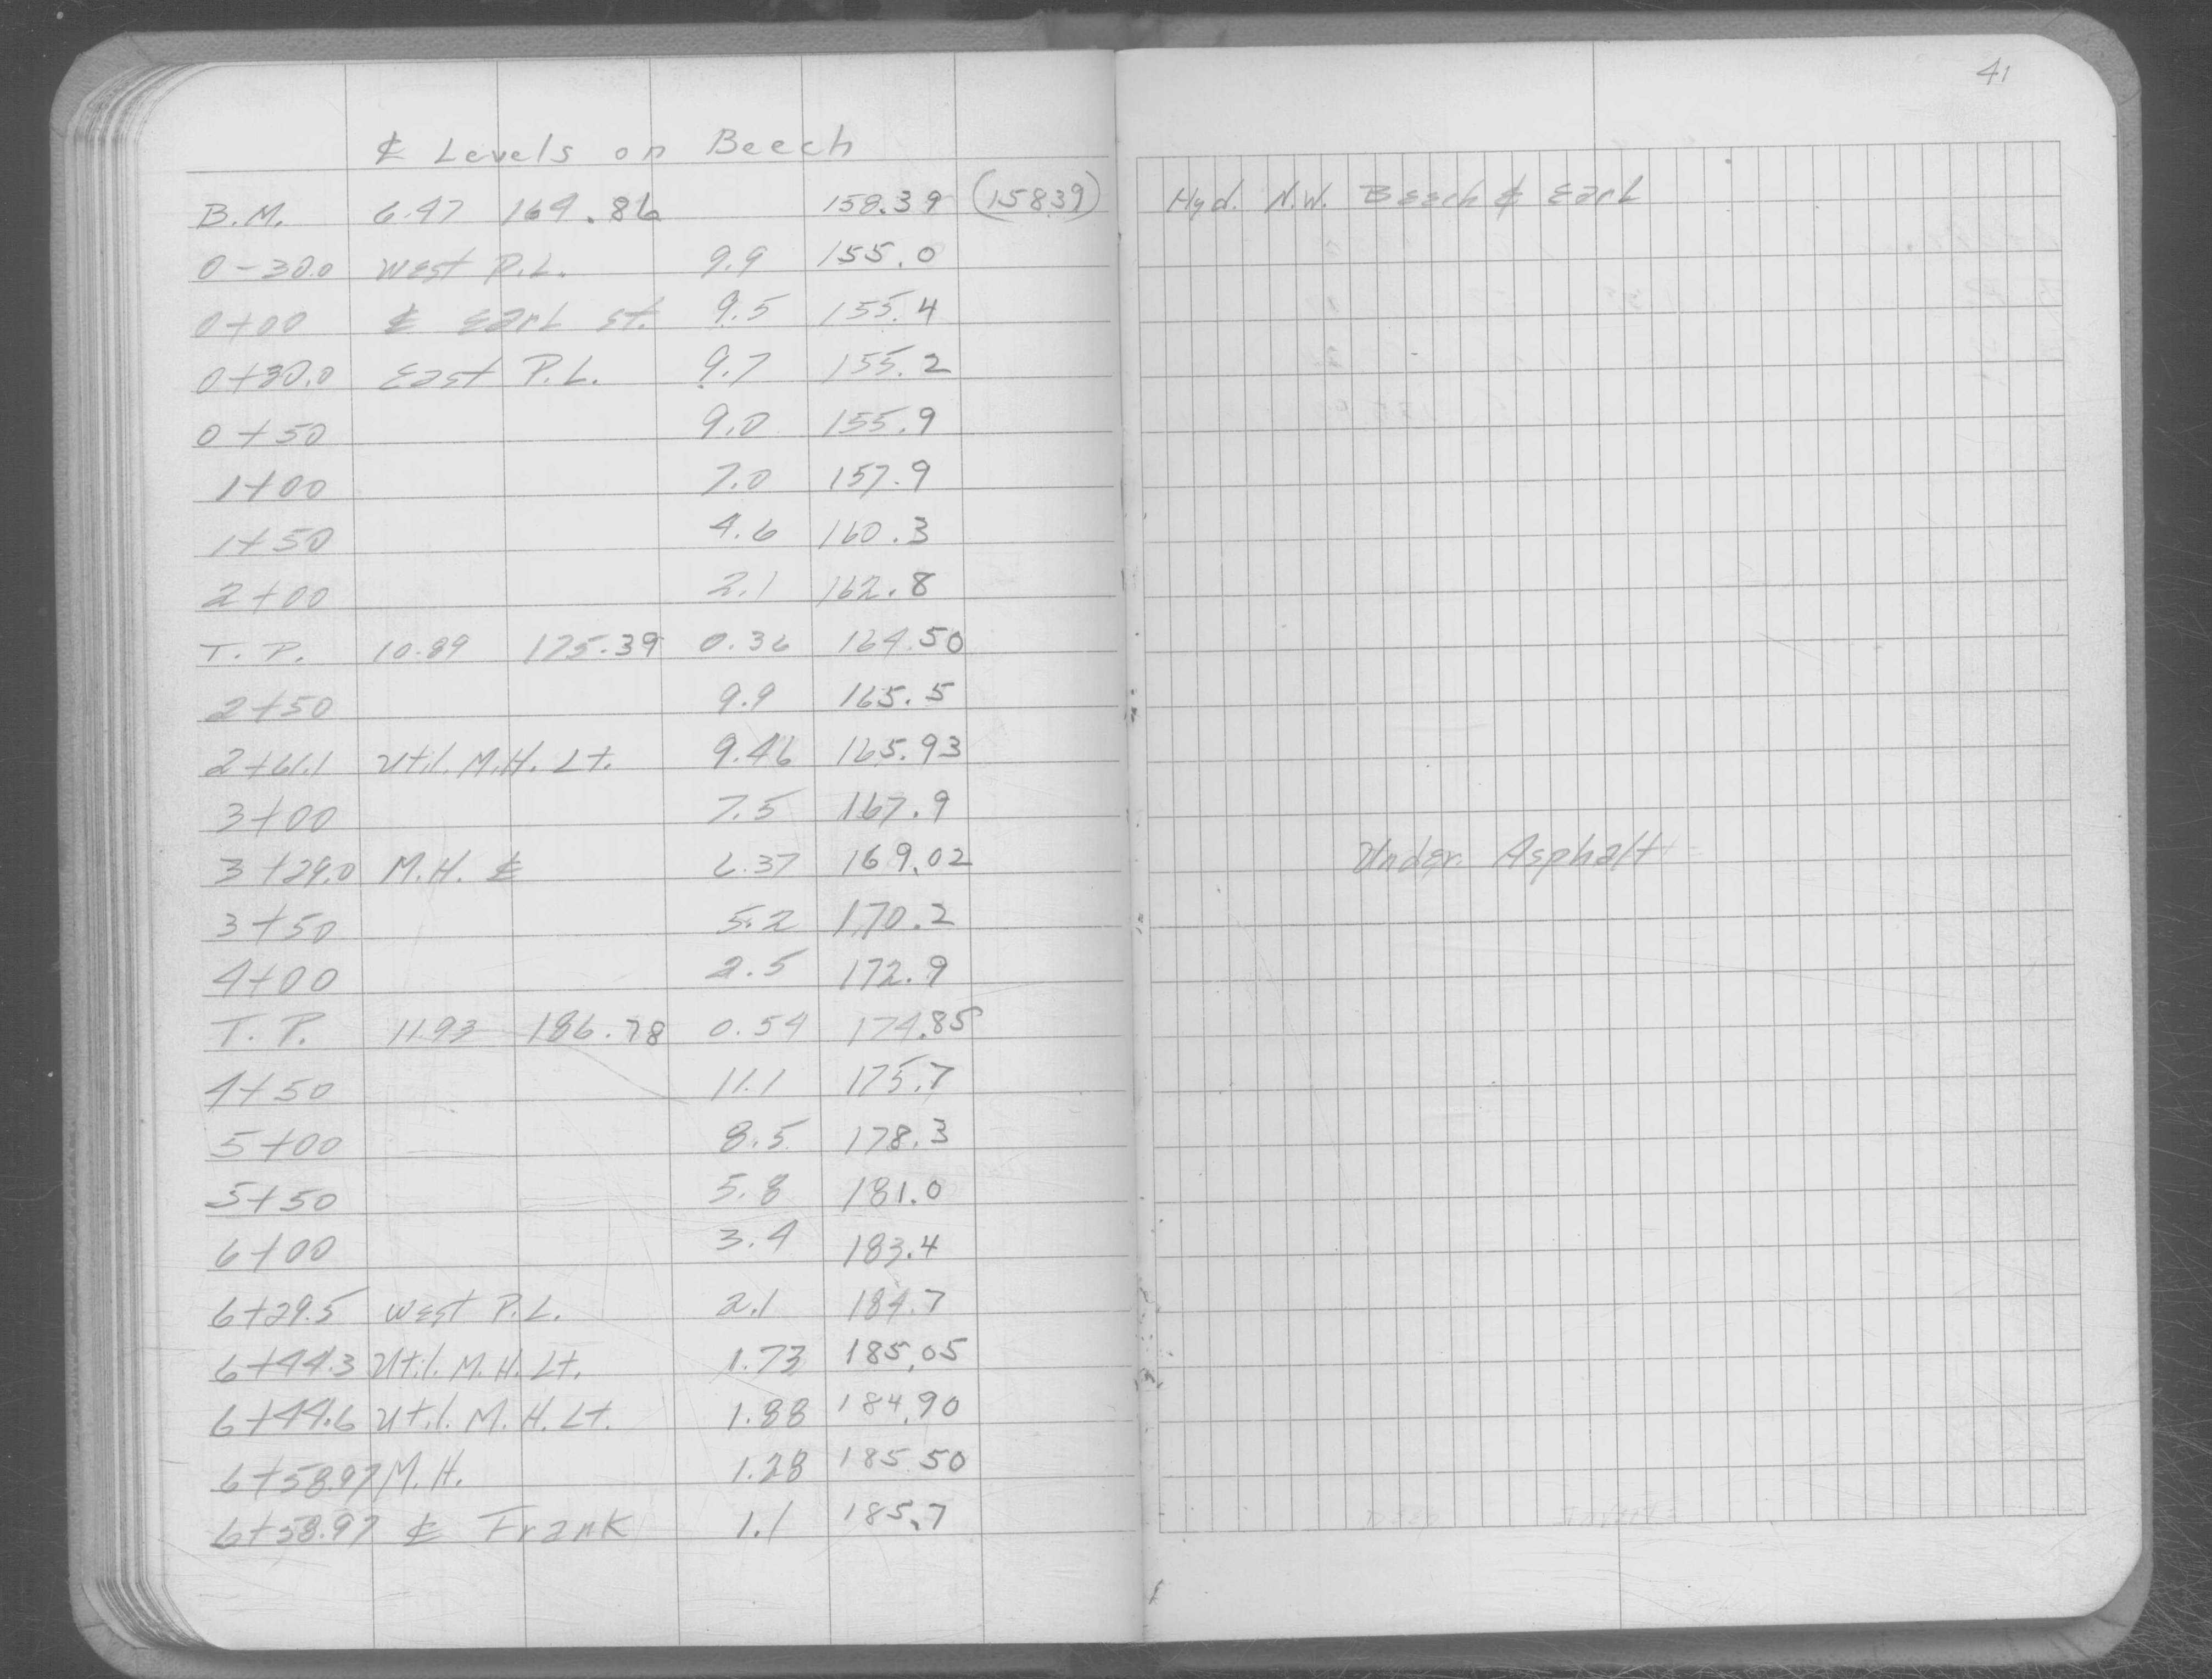 41
℄ Levels on Beech
B.M. 6.47 164.86 158.39 (158.39) Hyd. N.W. Beech & Earl
0-30.0 West P.L. 9.9 155.0
0+00 ℄ Earl st. 9.5 155.4
0+30.0 East P.L. 9.7 155.2
0+50 9.0 155.9
1+00 7.0 157.9
1+50 4.6 160.3
2+00 2.1 162.8
T.P. 10.89 175.39 0.36 164.50
2+50 9.9 165.5
2+61.1 Util. M.H. Lt. 9.46 165.93
3+00 7.5 167.9
3+29.0 M.H. ℄ 6.37 169.02 Under Asphalt
3+50 5.2 170.2
4+00 2.5 172.9
T.P. 11.93 186.78 0.54 174.85
4+50 11.1 175.7
5+00 8.5 178.3
5+50 5.8 181.0
6+00 3.4 183.4
6+29.5 West P.L. 2.1 184.7
6+44.3 Util. M.H. Lt. 1.73 185.05
6+44.6 Util. M.H. Lt. 1.88 184.90
6+58.97 M.H. 1.28 185.50
6+58.97 ℄ Frank 1.1 185.7